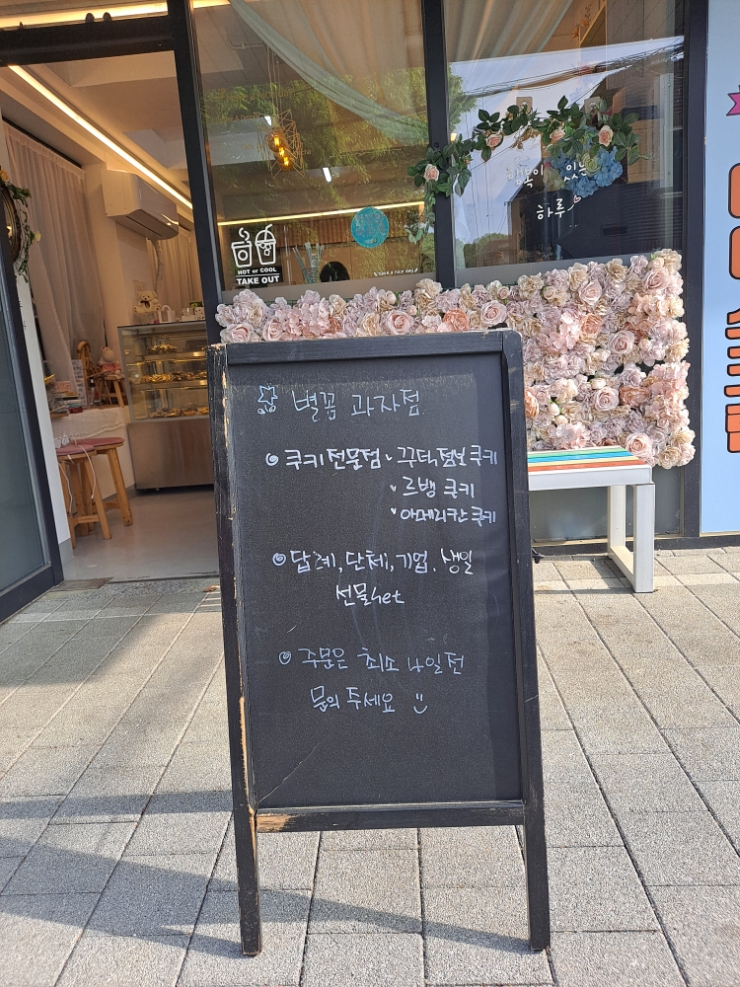 행복이 있는
하루
HOT or COOL
TAKE OUT
별꼼 과자점
쿠키전문점 꾸덕점보쿠키
르뱅 쿠키
아메리칸쿠키
답례, 단체, 기업, 생일
선물set
주문은 최소 4일전
문의 주세요